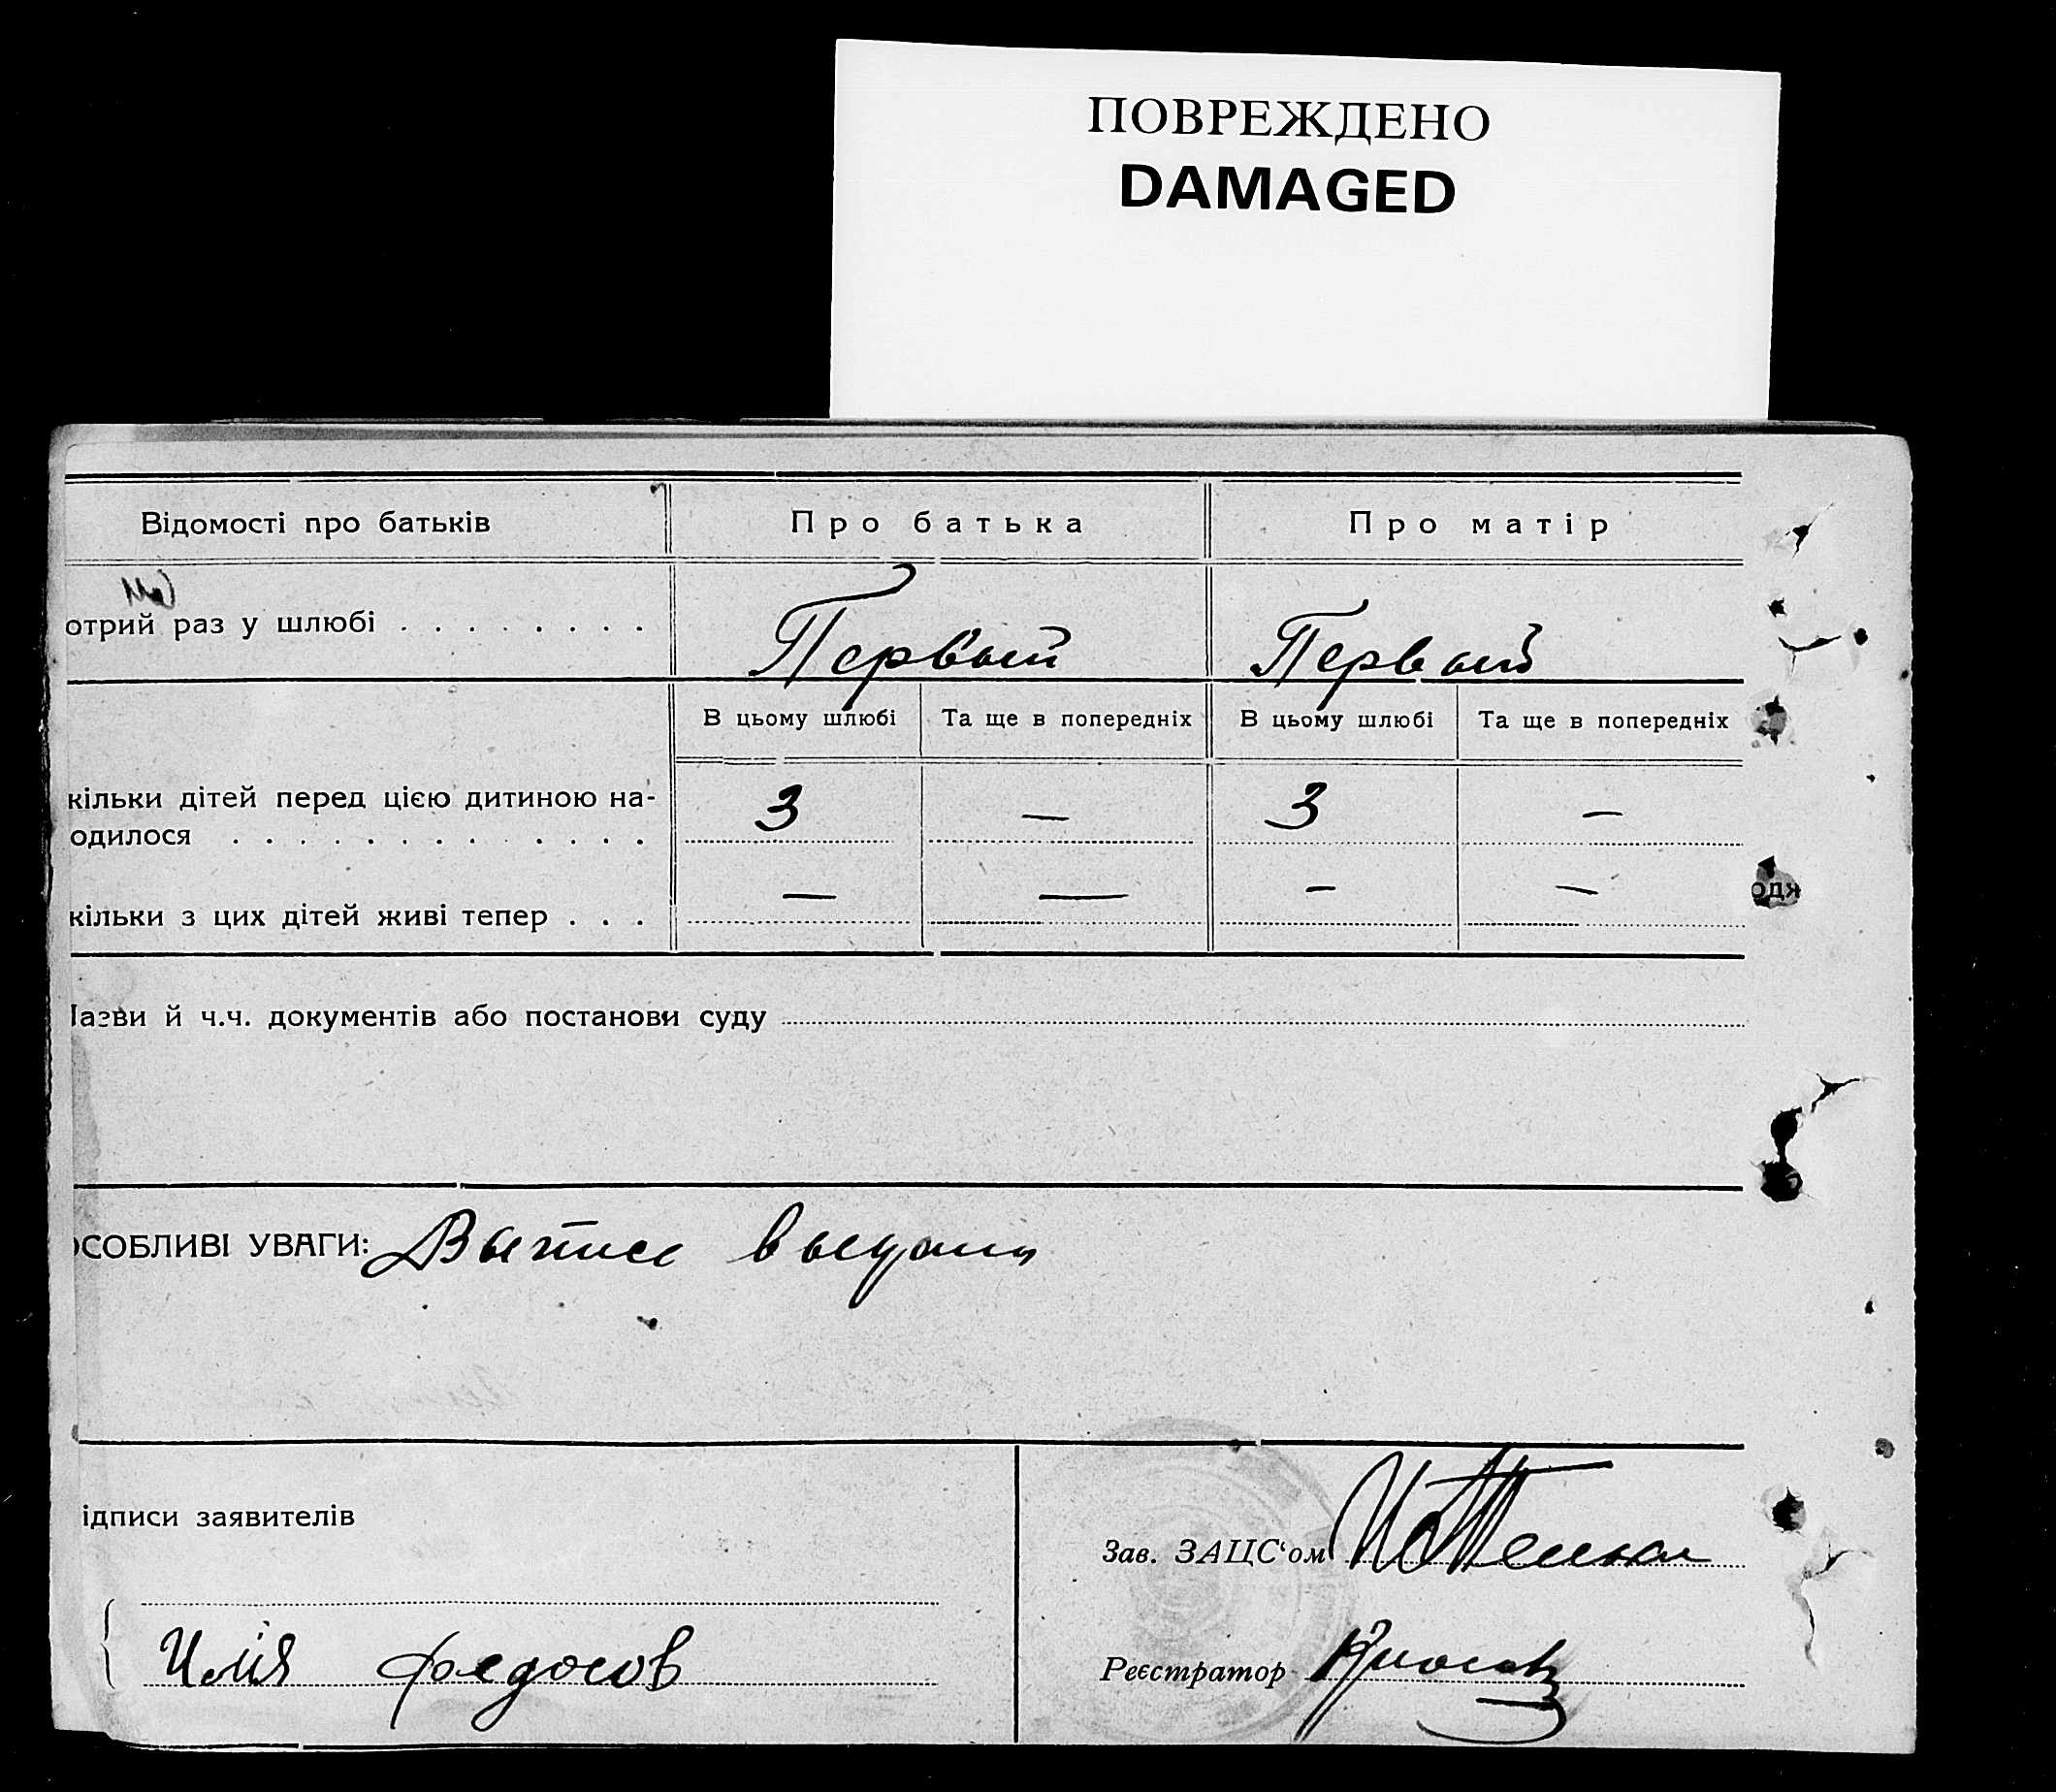 ПОВРЕЖДЕНО
DAMAGED
Відомості про батьків Про батька Про матір
отрий раз у шлюбі . . . . . . . . Первый Первый
В цьому шлюбі Та ще в попередніх В цьому шлюбі Та ще в попередніх
кільки дітей перед цією дитиною на-
одилося . . . . . . . . . . . . . 3 — 3 —
одя
кільки з цих дітей живі тепер . . . — — — —
азви й ч.ч. документів або постанови суду
СОБЛИВІ УВАГИ: Выписи выдана
ідписи заявителів
Зав. ЗАЦС'ом
Илія Федосов
Реєстратор